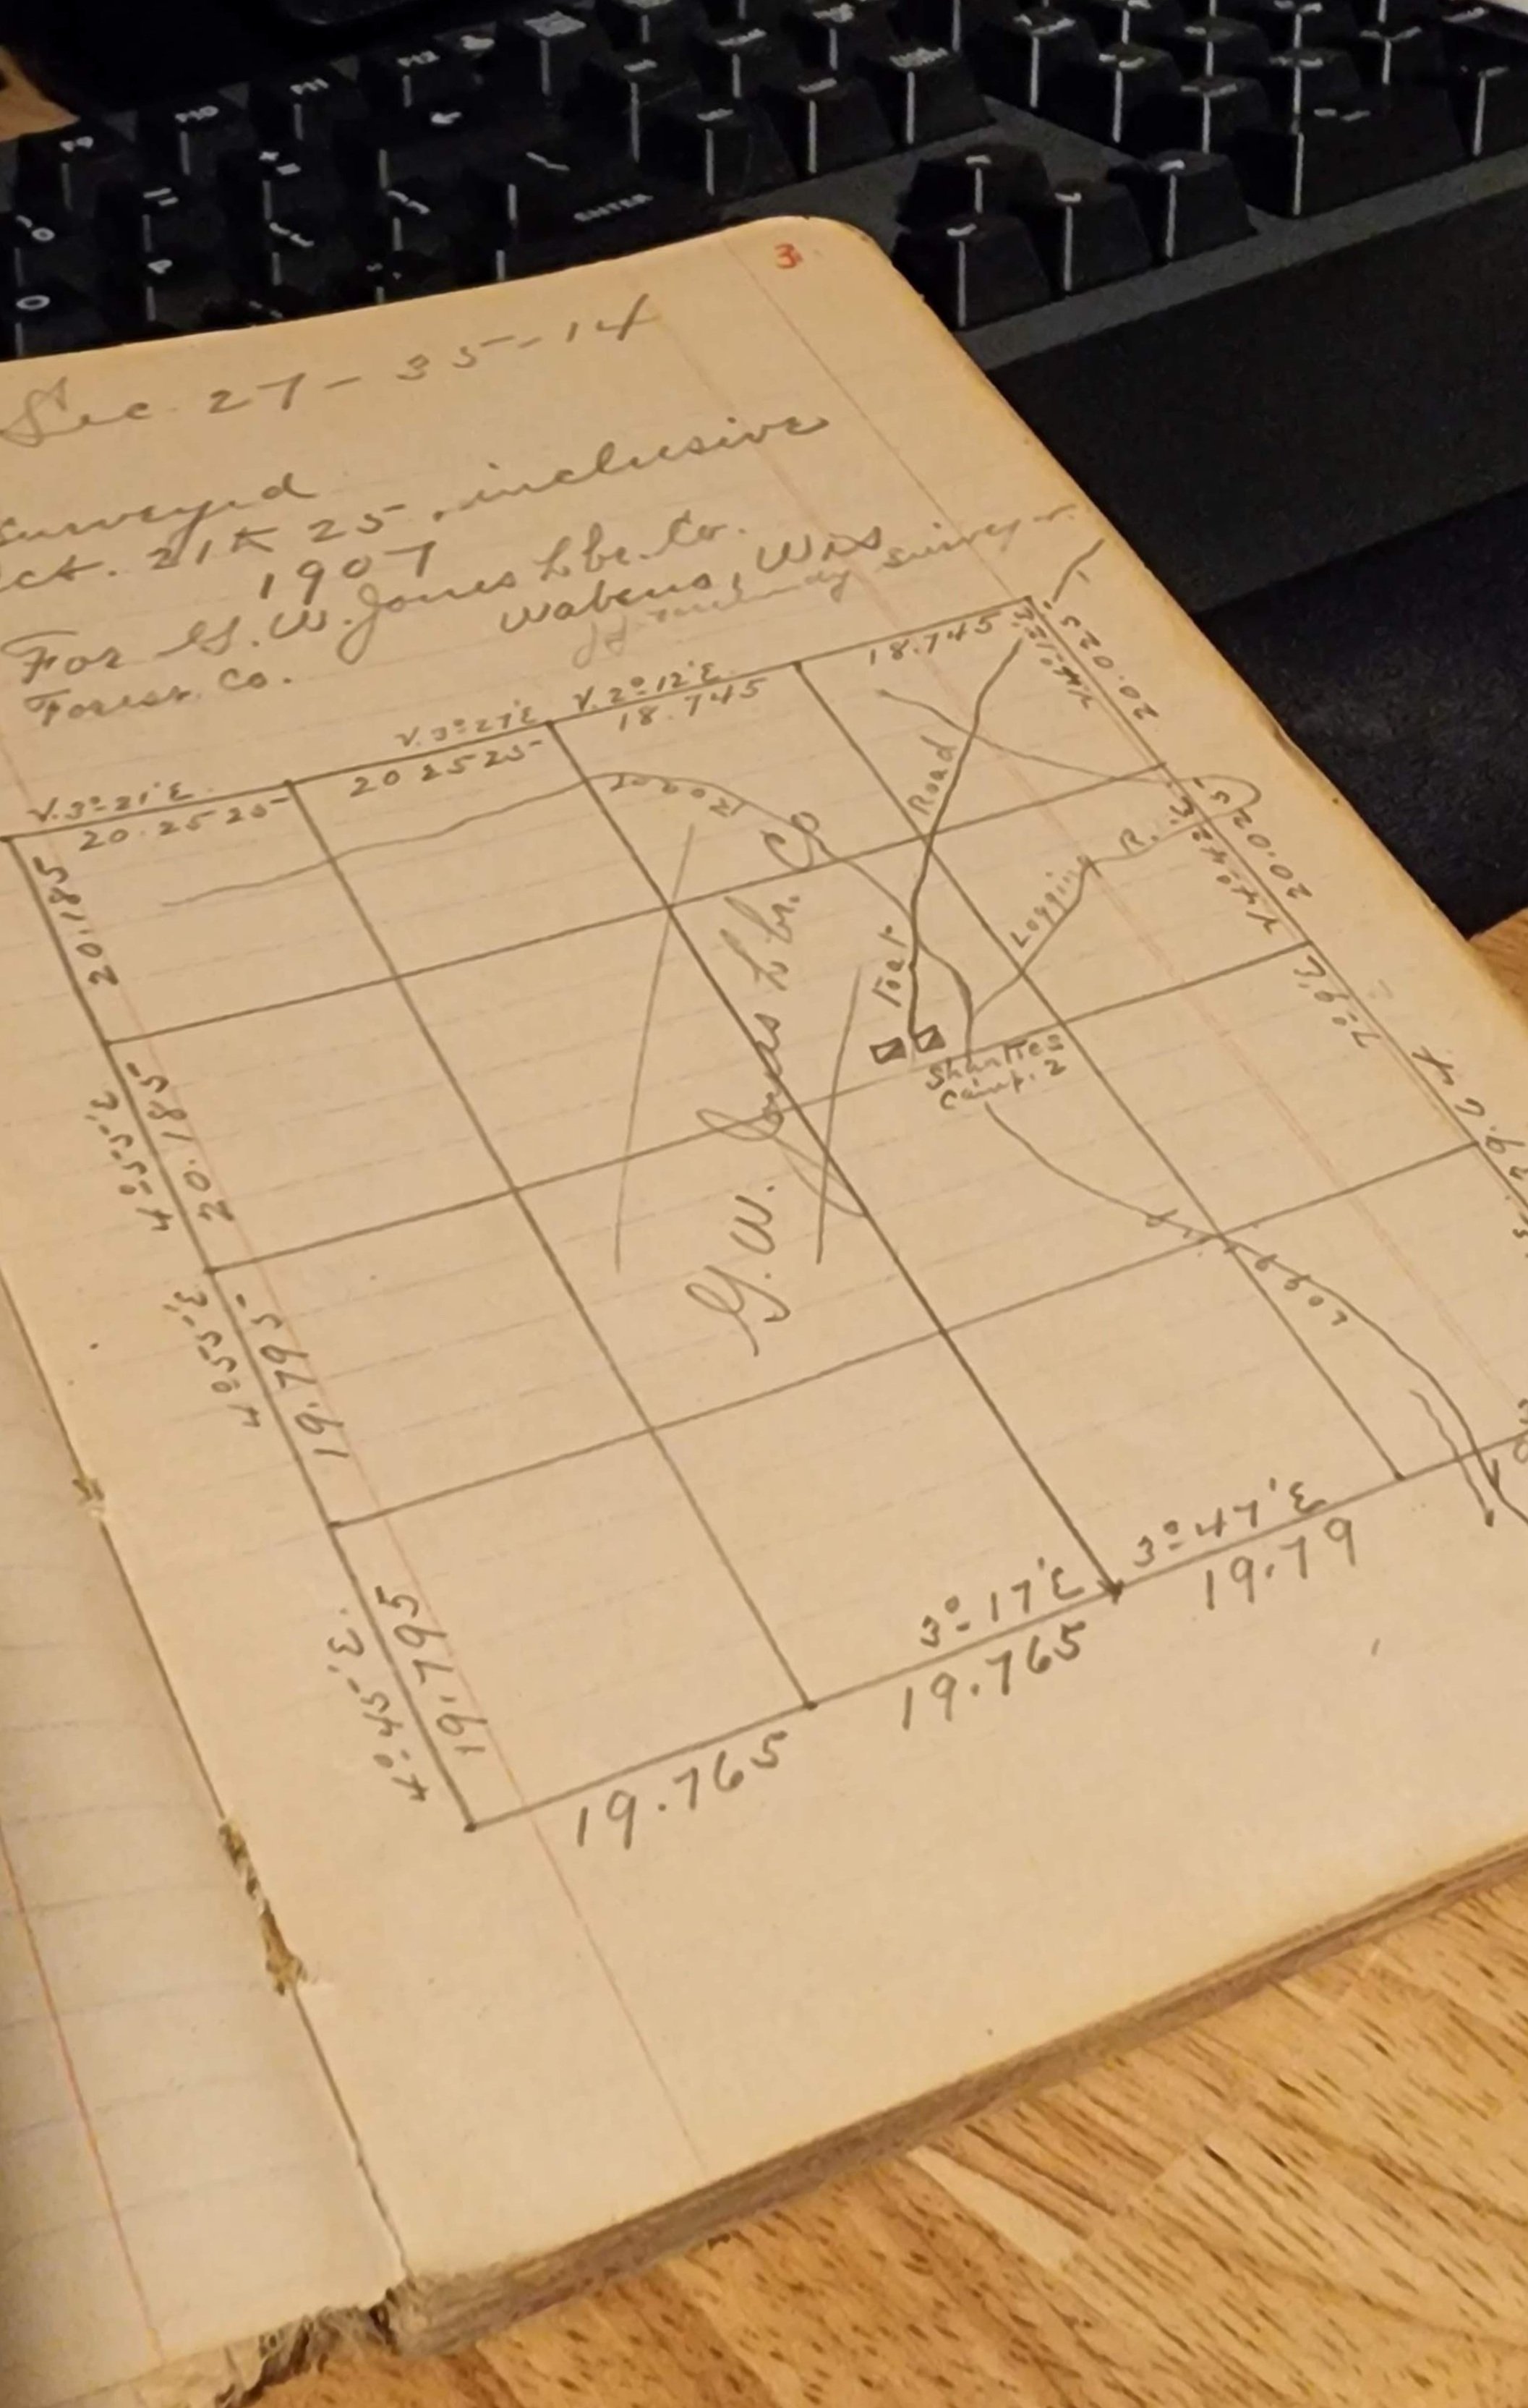 3
Sec 27-35-14
Surveyed
Oct. 21 to 25, inclusive
1907
For G. W. Jones Lbr. Co.
Wabeno, Wis
Forest Co.
surveyor
V. 3°-21'E
V. 3°-27'E
V. 2°-12'E
20.2525
20.2525
18.745
18.745
20.025
20.025
V 4°-42'E
7°-9'E
20.185
20.185
4°-55'E
4°-55'E
19.795
19.795
4°-45'E
Logging R.
Tote Road
Shanties
Camp. 2
G. W. Jones Lbr. Co
3°-17'E
3°-47'E
19.765
19.765
19.79
F9
F10
F11
F12
ENTER